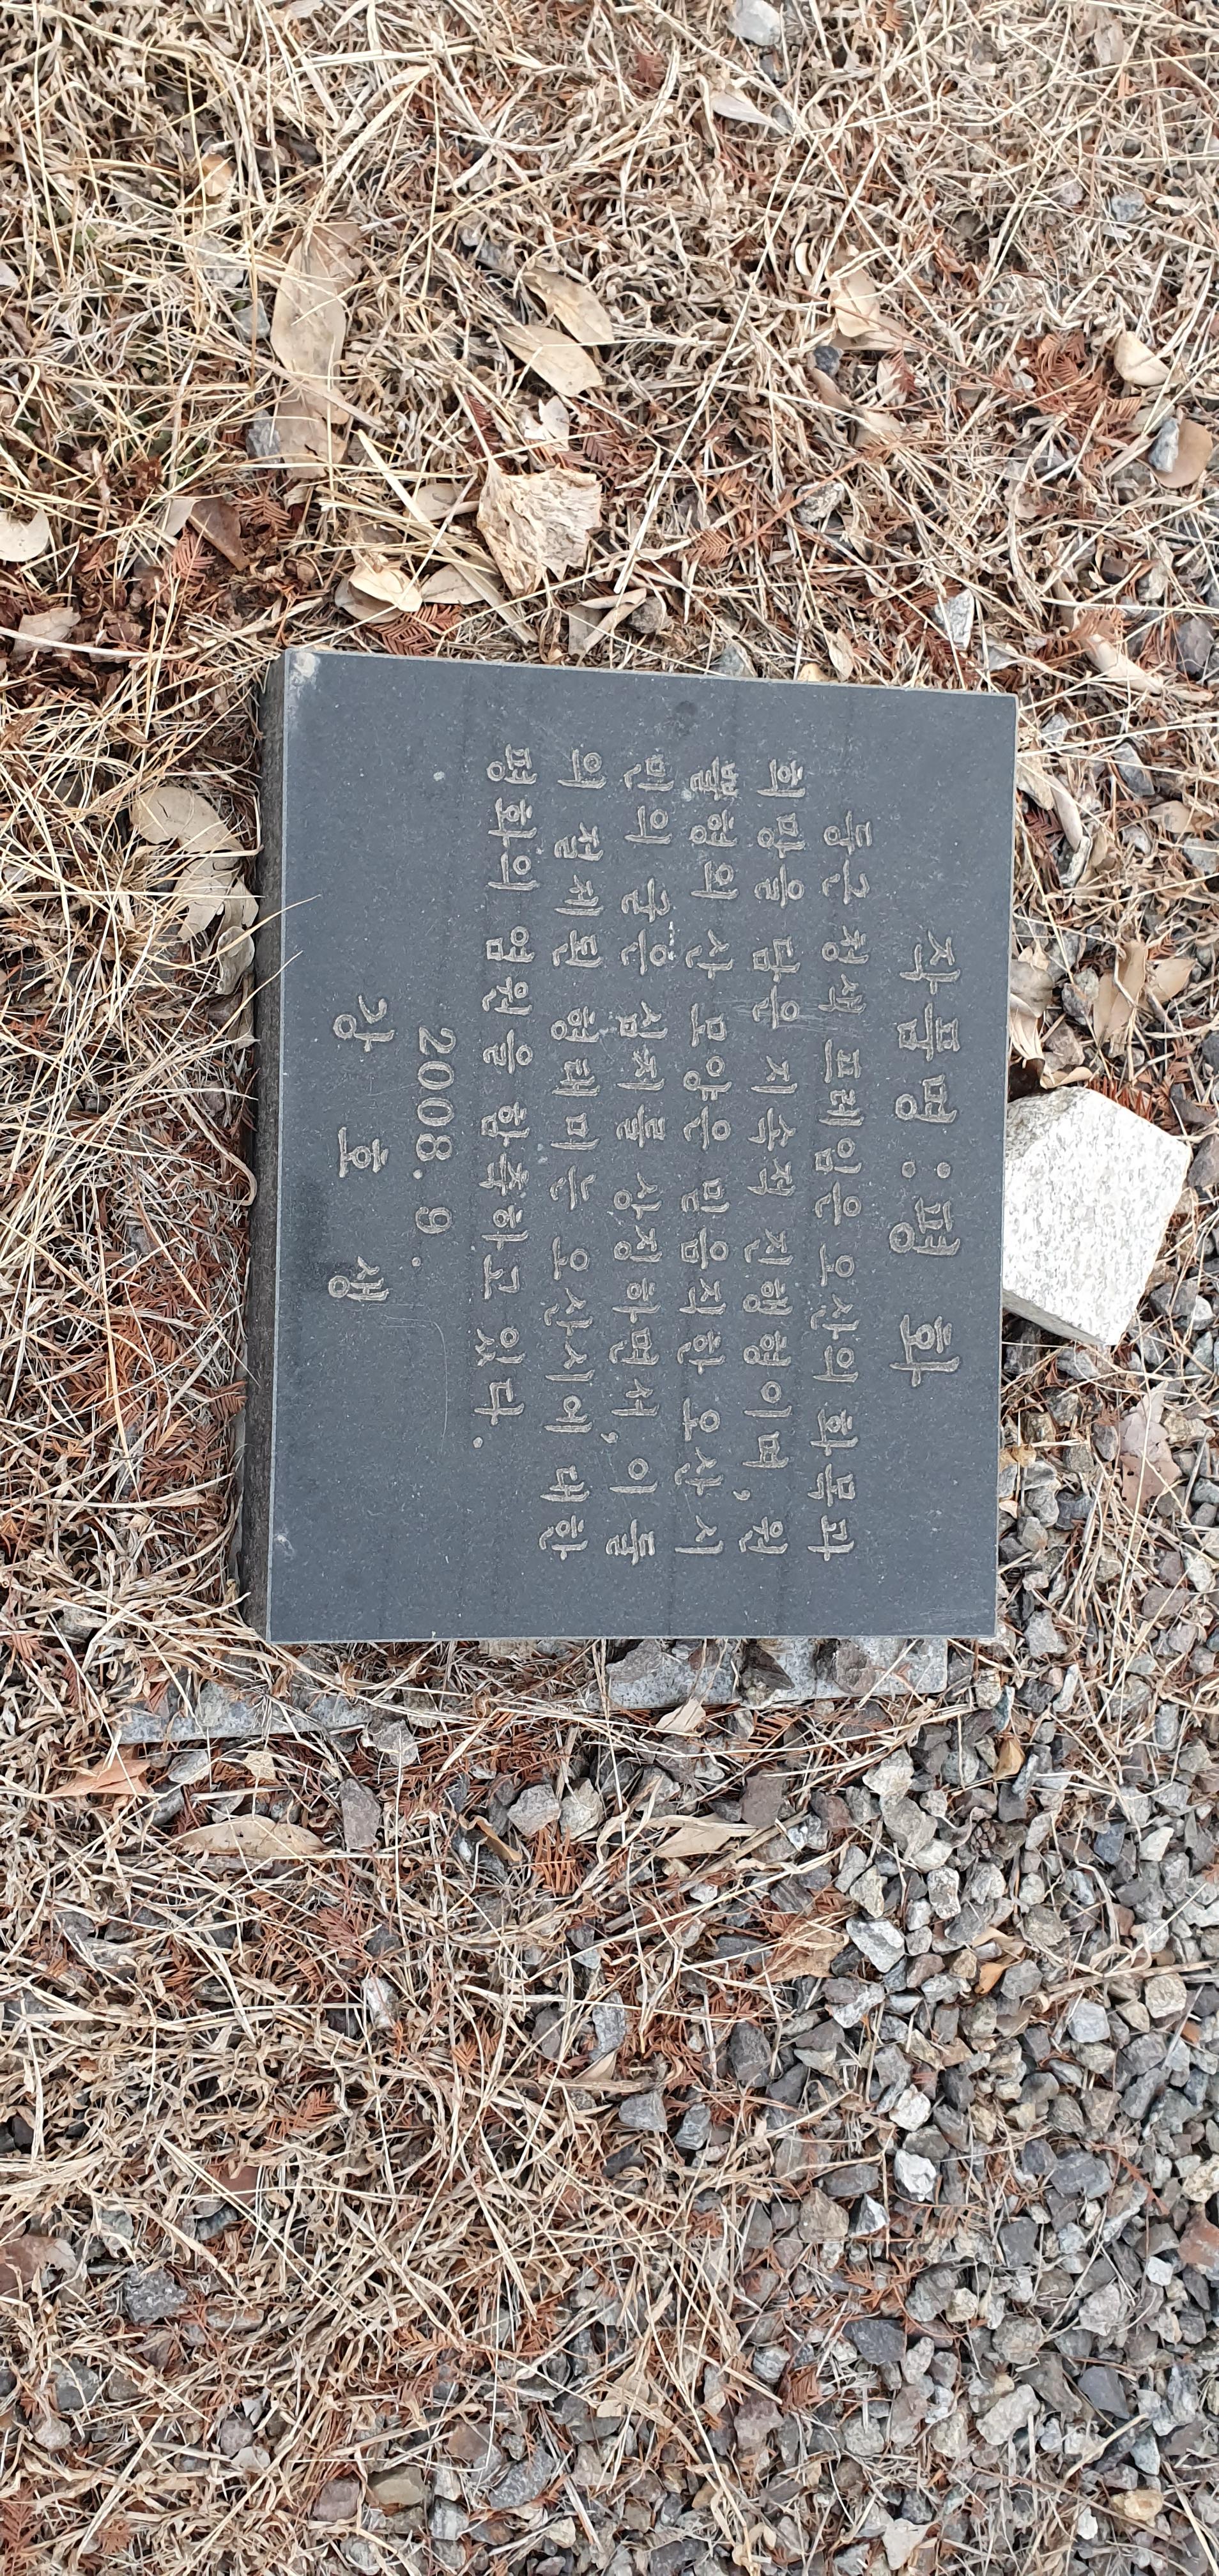 작품명 : 평 화
둥근 청색 프레임은 오산의 화목과
희망을 담은 지속적 진행형이며, 원
뿔형의 산 모양은 믿음직한 오산 시
민의 굳은 심지를 상징하면서, 이 들
의 절제된 형태미는 오산시에 대한
평화의 염원을 함축하고 있다.
2008. 9.
강 호 생